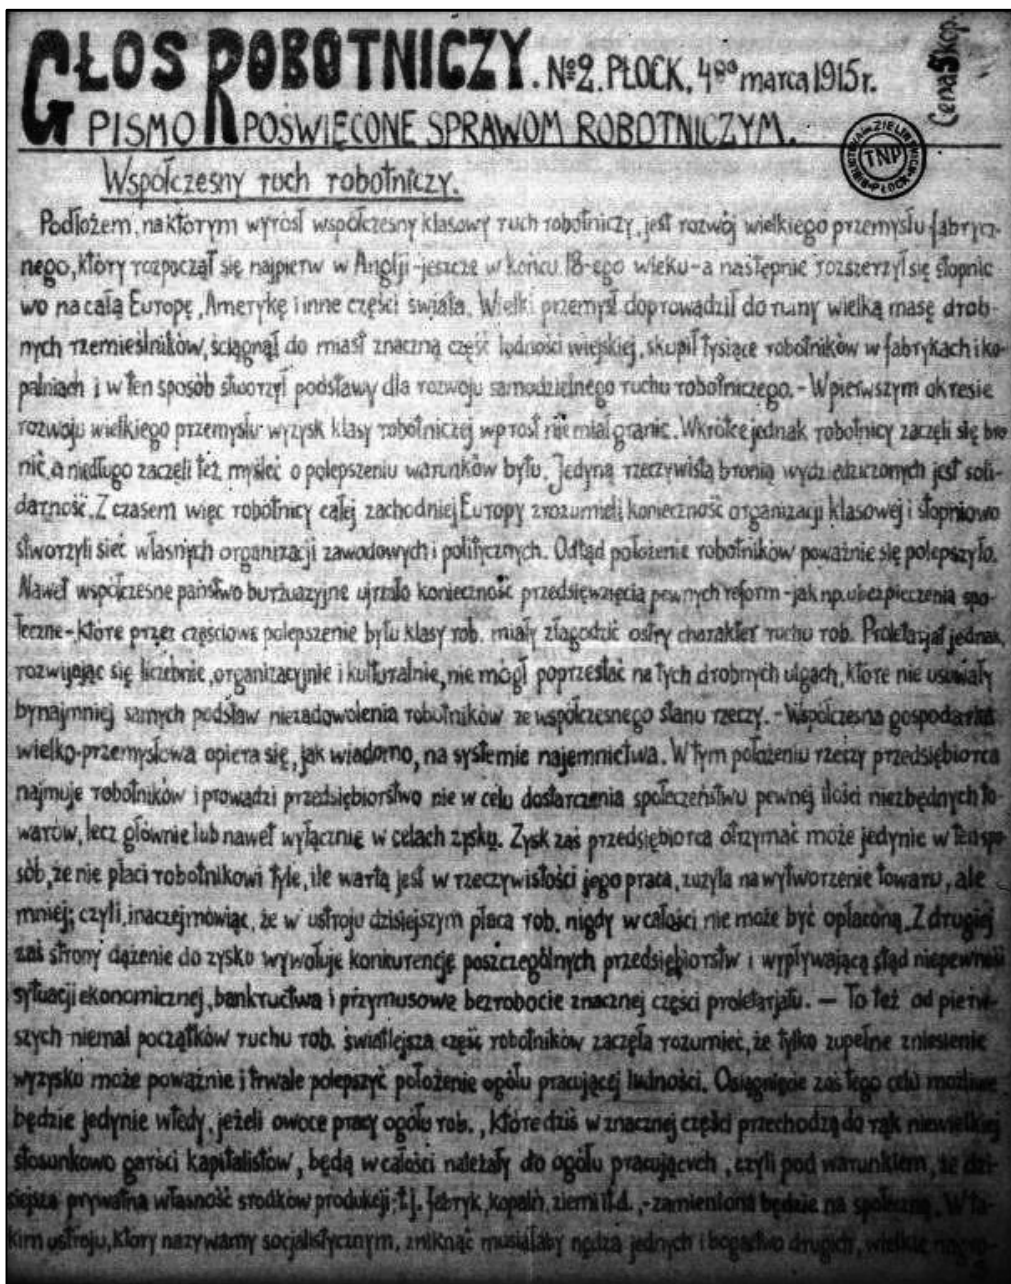 GŁOS ROBOTNICZY. № 2. PŁOCK, 4go marca 1915 r.
Cena 5 kop.
PISMO POŚWIĘCONE SPRAWOM ROBOTNICZYM.
TNP
Współczesny ruch robotniczy.
Podłożem, na którym wyrósł współczesny klasowy ruch robotniczy, jest rozwój wielkiego przemysłu fabrycz-
nego, który rozpoczął się najpierw w Anglji - jeszcze w końcu 18-ego wieku - a następnie rozszerzył się stopnio
wo na całą Europę, Amerykę i inne części świata. Wielki przemysł doprowadził do ruiny wielką masę drob-
nych rzemieślników, ściągnął do miast znaczną część ludności wiejskiej, skupił tysiące robotników w fabrykach i ko-
palniach i w ten sposób stworzył podstawy dla rozwoju samodzielnego ruchu robotniczego. - W pierwszym okresie
rozwoju wielkiego przemysłu wyzysk klasy robotniczej wprost nie miał granic. Wkrótce jednak robotnicy zaczęli się bro
nić, a niedługo zaczęli też myśleć o polepszeniu warunków bytu. Jedyną rzeczywistą bronią wydziedziczonych jest soli-
darność. Z czasem więc robotnicy całej zachodniej Europy zrozumieli konieczność organizacji klasowej i stopniowo
stworzyli sieć własnych organizacji zawodowych i politycznych. Odtąd położenie robotników poważnie się polepszyło.
Nawet współczesne państwo burżuazyjne ujrzało konieczność przedsięwzięcia pewnych reform - jak np. ubezpieczenia spo-
łeczne - które przez częściowe polepszenie bytu klasy rob. miały złagodzić ostry charakter ruchu rob. Proletarjat jednak,
rozwijając się liczebnie, organizacyjnie i kulturalnie, nie mógł poprzestać na tych drobnych ulgach, które nie usuwały
bynajmniej samych podstaw niezadowolenia robotników ze współczesnego stanu rzeczy. - Współczesna gospodarka
wielko-przemysłowa opiera się, jak wiadomo, na systemie najemnictwa. W tym położeniu rzeczy przedsiębiorca
najmuje robotników i prowadzi przedsiębiorstwo nie w celu dostarczenia społeczeństwu pewnej ilości niezbędnych to-
warów, lecz głównie lub nawet wyłącznie w celach zysku. Zysk zaś przedsiębiorca otrzymać może jedynie w ten spo-
sób, że nie płaci robotnikowi tyle, ile wartą jest w rzeczywistości jego praca, zużyta na wytworzenie towaru, ale
mniej; czyli, inaczej mówiąc, że w ustroju dzisiejszym płaca rob. nigdy w całości nie może być opłaconą. Z drugiej
zaś strony dążenie do zysku wywołuje konkurencję poszczególnych przedsiębiorstw i wypływającą stąd niepewność
sytuacji ekonomicznej, bankructwa i przymusowe bezrobocie znacznej części proletarjatu. — To też od pierw-
szych niemal początków ruchu rob. światlejsza część robotników zaczęła rozumieć, że tylko zupełne zniesienie
wyzysku może poważnie i trwale polepszyć położenie ogółu pracującej ludności. Osiągnięcie zaś tego celu możliwe
będzie jedynie wtedy, jeżeli owoce pracy ogółu rob., które dziś w znacznej części przechodzą do rąk niewielkiej
stosunkowo garści kapitalistów, będą w całości należały do ogółu pracujących, czyli pod warunkiem, że dzi-
siejsza prywatna własność środków produkcji, t.j. fabryk, kopalń, ziemi i t.d., - zamieniona będzie na społeczną. W ta-
kim ustroju, który nazywamy socjalistycznym, zniknąć musiałaby nędza jednych i bogactwo drugich, wielkie